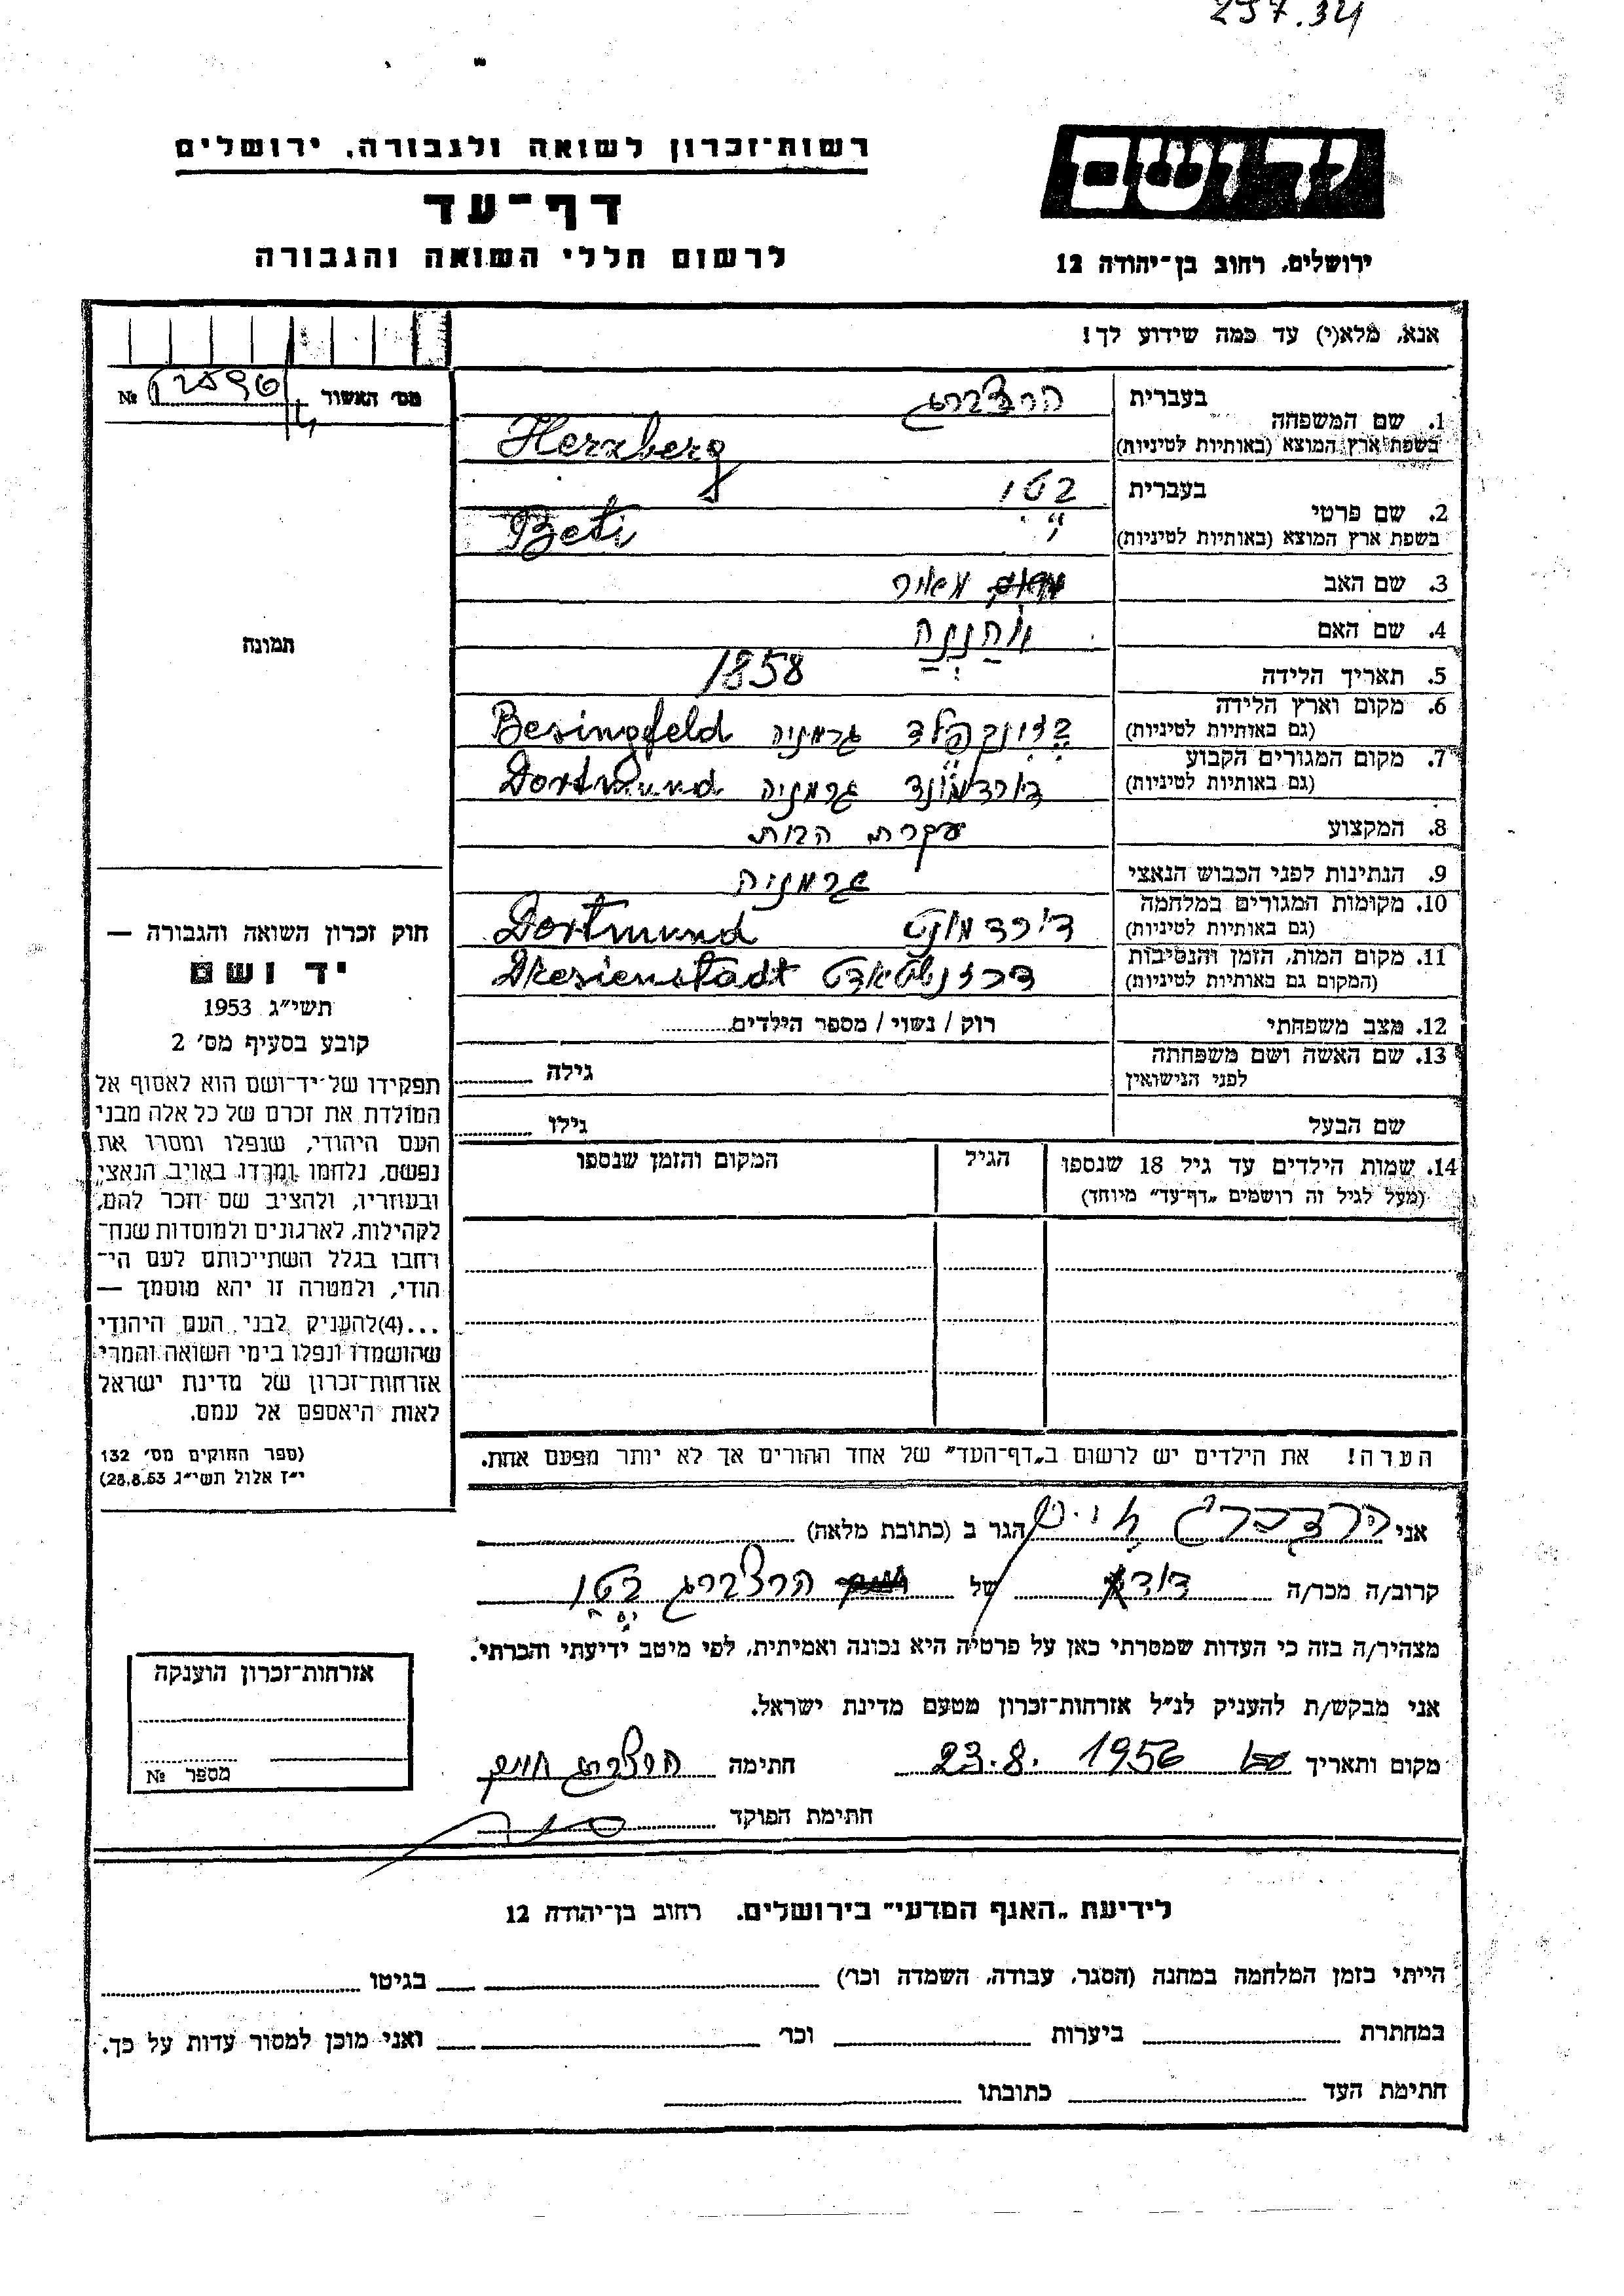 297.34
רשות־זכרון לשואה ולגבורה, ירושלים
דף־עד
לרשום חללי השואה והגבורה
יד ושם
ירושלים, רחוב בן־יהודה 12
אנא, מלא(י) עד כמה שידוע לך!
מס׳ האשור № 12596
1. שם המשפחה בעברית הרצברג
בשפת ארץ המוצא (באותיות לטיניות) Herzberg
2. שם פרטי בעברית בטי
בשפת ארץ המוצא (באותיות לטיניות) Beti
3. שם האב מאיר
4. שם האם
5. תאריך הלידה 1858
6. מקום וארץ הלידה (גם באותיות לטיניות) בזינגפלד גרמניה Besingfeld
7. מקום המגורים הקבוע (גם באותיות לטיניות) דורטמונד גרמניה Dortmund
8. המקצוע עקרת הבית
9. הנתינות לפני הכבוש הנאצי גרמניה
10. מקומות המגורים במלחמה (גם באותיות לטיניות) Dortmund
11. מקום המות, הזמן והנסיבות (המקום גם באותיות לטיניות) Dresienstadt
12. מצב משפחתי רוק / נשוי / מספר הילדים
13. שם האשה ושם משפחתה לפני הנישואין גילה
שם הבעל גילו
14. שמות הילדים עד גיל 18 שנספו הגיל המקום והזמן שנספו
(מעל לגיל זה רושמים „דף־עד” מיוחד)
הערה! את הילדים יש לרשום ב„דף־העד” של אחד ההורים אך לא יותר מפעם אחת.
תמונה
חוק זכרון השואה והגבורה —
יד ושם
תשי״ג 1953
קובע בסעיף מס׳ 2
תפקידו של יד־ושם הוא לאסוף אל
המולדת את זכרם של כל אלה מבני
העם היהודי, שנפלו ומסרו את
נפשם, נלחמו ומרדו באויב הנאצי
ובעוזריו, ולהציב שם וזכר להם,
לקהילות, לארגונים ולמוסדות שנח־
רבו בגלל השתייכותם לעם הי־
הודי, ולמטרה זו יהא מוסמך —
...(4)להעניק לבני העם היהודי
שהושמדו ונפלו בימי השואה והמרי
אזרחות־זכרון של מדינת ישראל
לאות היאספם אל עמם.
(ספר החוקים מס׳ 132
י״ז אלול תשי״ג 28.8.53)
אני הרצברג חיים הגר ב (כתובת מלאה)
קרוב/ה מכר/ה של הרצברג בטי
מצהיר/ה בזה כי העדות שמסרתי כאן על פרטיה היא נכונה ואמיתית, לפי מיטב ידיעתי והכרתי.
אני מבקש/ת להעניק לנ״ל אזרחות־זכרון מטעם מדינת ישראל.
מקום ותאריך 23.8. 1956 חתימה הרצברג חיים
חתימת הפוקד
אזרחות־זכרון הוענקה
מספר №
לידיעת „האגף המדעי” בירושלים. רחוב בן־יהודה 12
הייתי בזמן המלחמה במחנה (הסגר, עבודה, השמדה וכו׳) בגיטו
במחתרת ביערות וכו׳ ואני מוכן למסור עדות על כך.
חתימת העד כתובתו